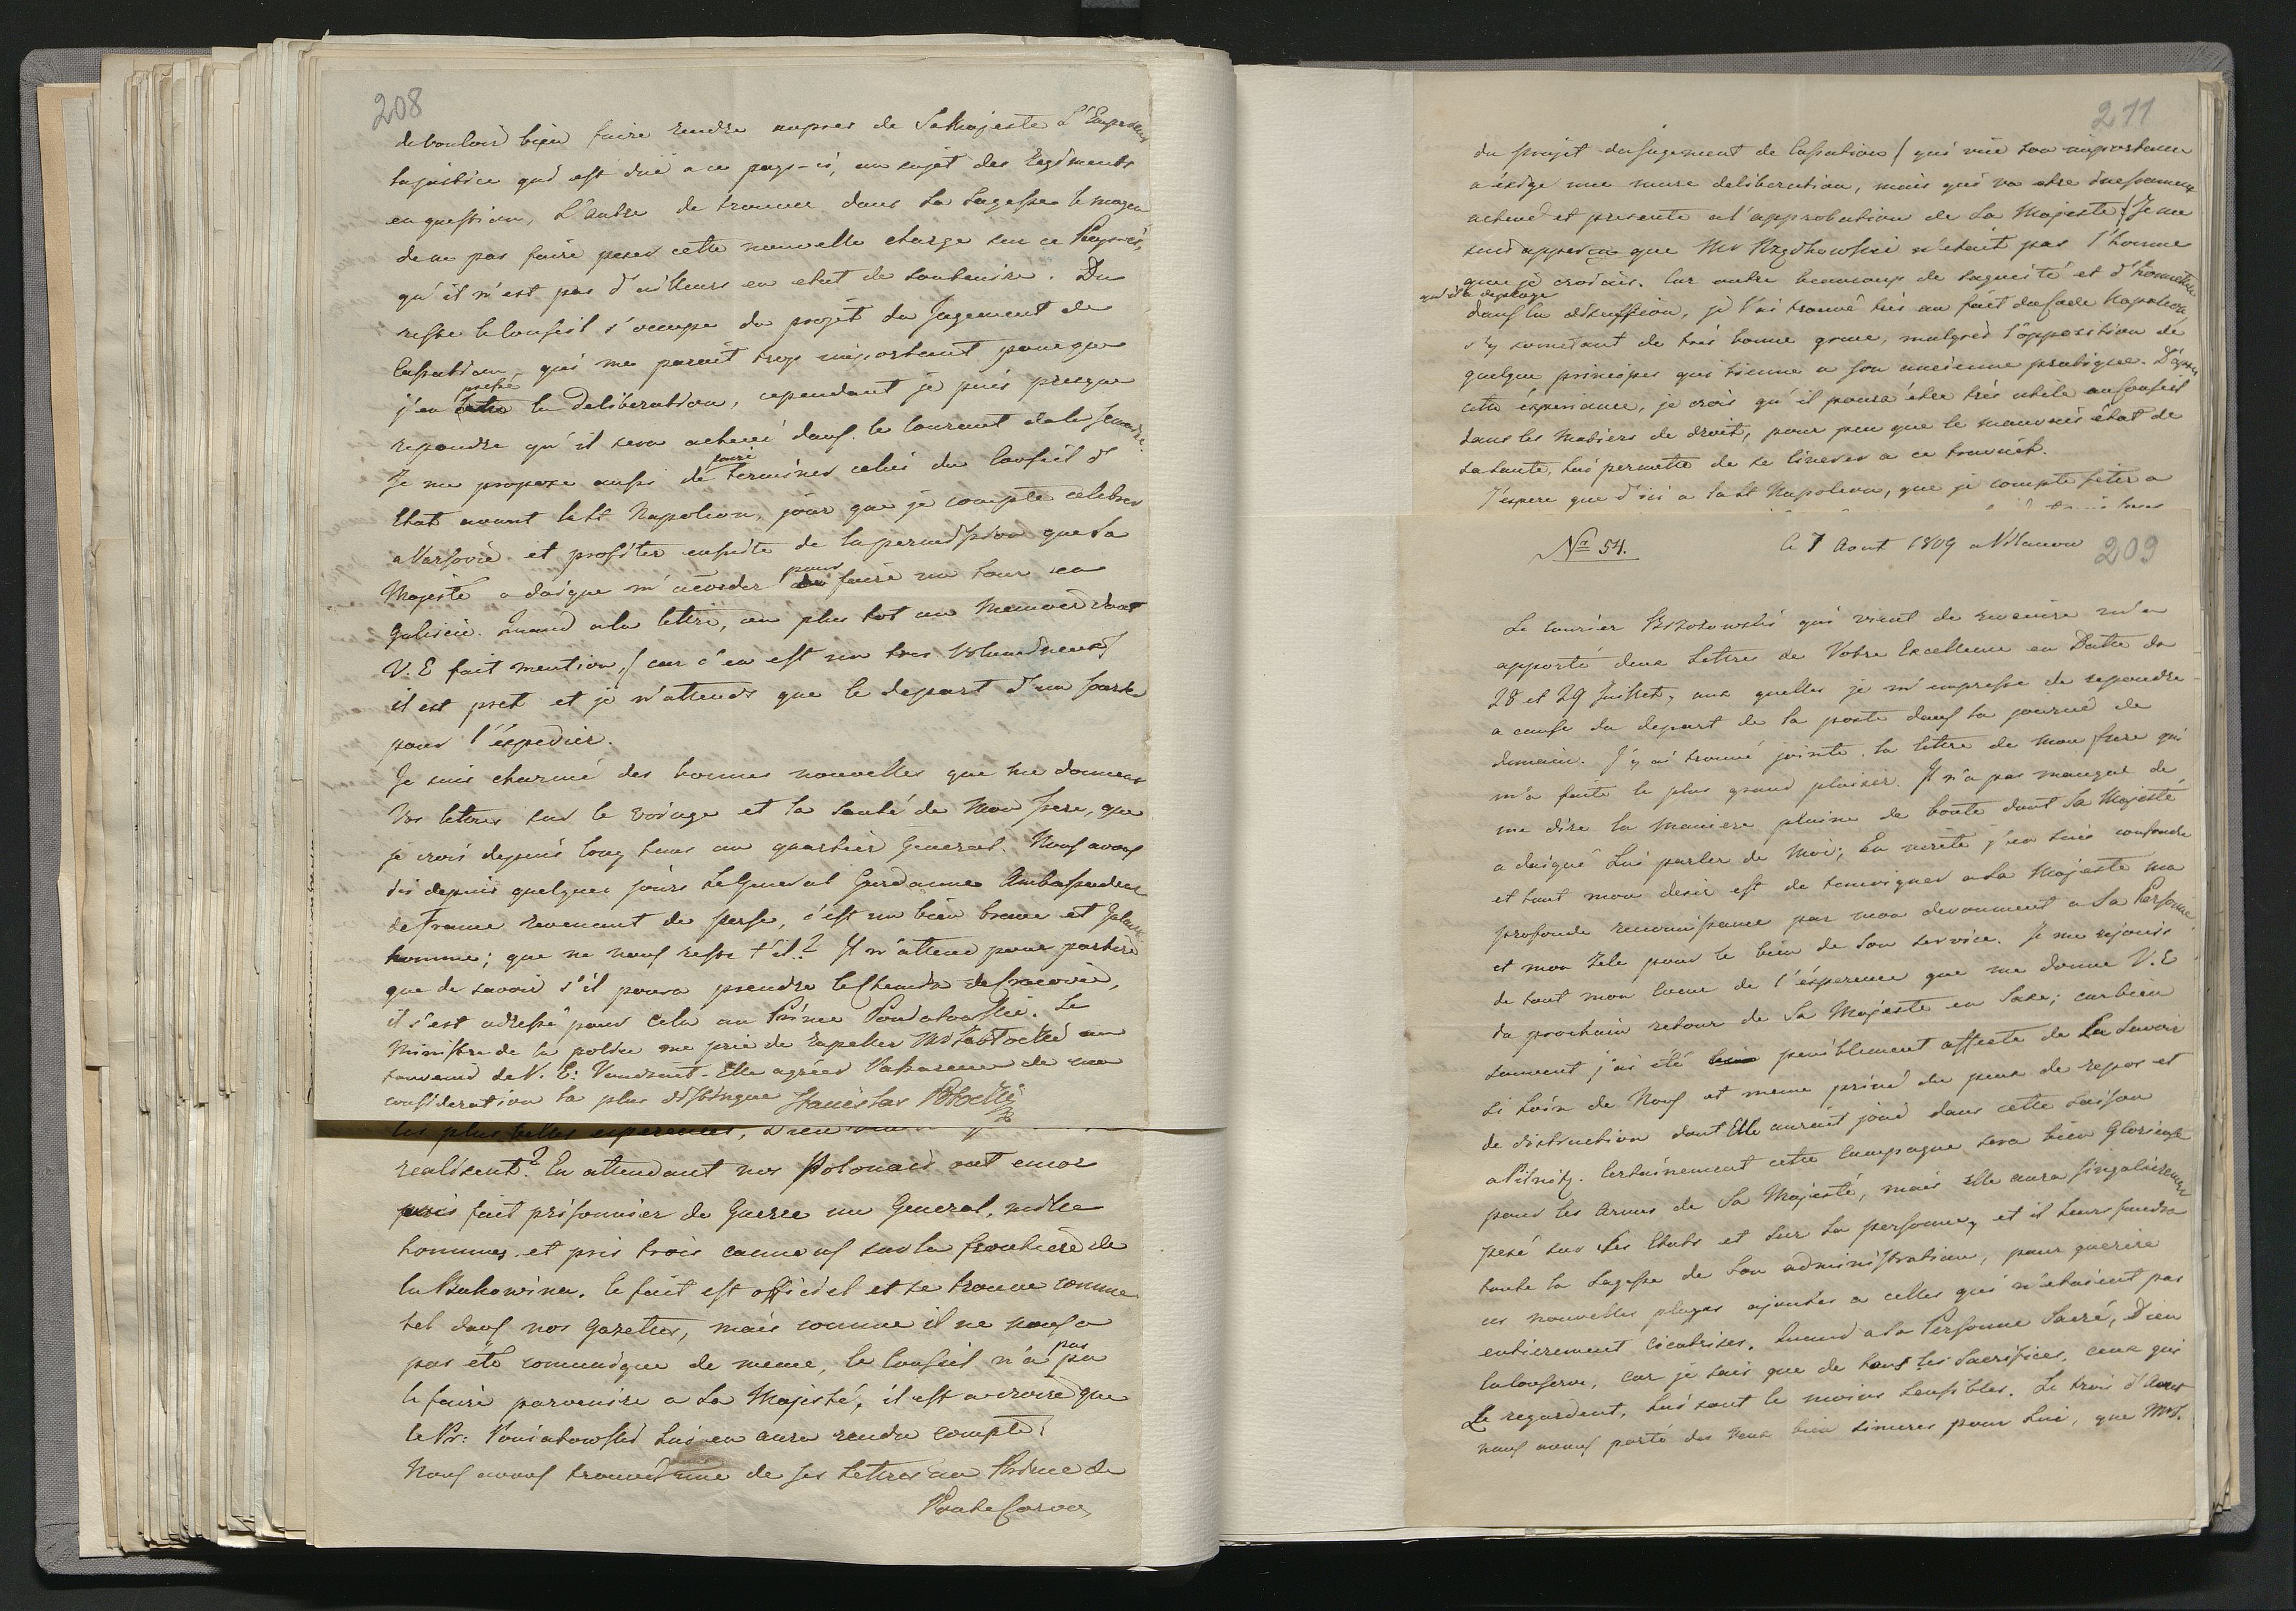 208
de vouloir bien faire rendre aupres de Sa Majeste L'Empereur
la justice qui est due a ce pays-ci, au sujet des Regiments
en question, L'autre de trouver dans sa sagesse le moyen
de ne pas faire peser cette nouvelle charge sur ce Pays-ci,
qu'il n'est pas d'ailleurs en etat de soutenire. Du
reste le Conseil s'occupe du projet du Jugement de
Cassation, qui me parait trop important pour que
j'en presse la Deliberation, cependant je puis presque
repondre qu'il sera achevé dans le courant de la semaine.
Je me propose aussi de faire terminer celui du Conseil d
Etat avant la St Napoleon, jour que je compte celebrer
a Varsovie et profiter ensuite de la permission que Sa
Majesté a daigné m'accorder pour faire un tour en
Galicie. Quand a la lettre, ou plus tot au Memoire dont
V. E fait mention, (car c'en est un tres volumineux)
il est pret et je n'attends que le depart d'un
pour l'éxpedier.
Je suis charmé des bonnes nouvelles que me donnent
Vos lettres sur le voiage et la santé de Mon frere, que
je crois depuis long tems au quartier General. Nous avons
ici depuis quelques jours le General Gardanne Ambassadeur
de France revenant de Perse, c'est un bien brave et Galant
homme; que ne nous reste t'il? Il n'attend pour partire
que de savoir s'il poura prendre le Chemin de Cracovie,
il s'est adressé pour cela au Prince Poniatowski. Le
Ministre de la police me prie de rapeller Md Potocki au
souvenir de V. E: Voudroit-Elle agréer l'assurance de ma
consideration la plus distingue Stanislas Potocki
les plus belles esperences, Dieu
realisent? En attendant nos Polonais ont encor
fait prisonnier de Guerre un General, mille
hommes et pris trois canneons sur la frontiere de
la Bukowina. le fait est officiel et se trouve comme
tel dans nos Gazettes, mais comme il ne nous a
pas été comunique de meme, le Conseil n'a pas pu
le faire parvenire a Sa Majesté, il est a croire que
le Pr: Poniatowski Lui en aura rendu compte.
Nous avons trouvé une de ses Lettres au Prince de
Ponte Corvo,
211
du projet du Jugement de Cassation (qui vue son importance
a éxige une mure deliberation, mais qui va etre
acheve et presente a l'approbation de Sa Majeste) Je me
suis apperçu que Mr Rzędkowski n'etait pas l'homme
que je croiais. Car outre beaucoup de sagacité et d'honnêteté
qu'il a deploye
dans la discussion, je l'ai trouvé très au fait du Code Napoleon,
s'y soumetant de très bonne grace, malgré l'opposition de
quelque principes qui tienne a son ancienne pratique. D'après
cette éxperiance, je crois qu'il poura être très utile au Conseil
dans les Matiers de droit, pour peu que le mauvais état de
sa sante, lui permette de se livrer a ce travail.
J'espere que d'ici a la St Napoleon, que je compte fêter a
No 54.
le 7 Aout 1809 a Vilanow
209
Le courier qui vient de revenire m'a
apporté deux Lettres de Votre Excellence en Datte du
28 et 29 Juillet, aux quelles je m'empresse de repondre
a cause du depart de la poste dans la journé de
demain. J'y ai trouvé jointe la lettre de Mon frere qui
m'a faite le plus grand plaisir. Il n'a pas manqué de
me dire la maniere plaine de bonte dont Sa Majesté
a daigné Lui parler de Moi; En verité j'en suis confondu
et tout mon desir est de temoigner a Sa Majeste ma
profonde reconnaissance par mon devouement a Sa Personne
et mon Zele pour le bien de Son service. Je me rejouis
de tout mon Coeur de l'ésperence que me donne V. E
du prochain retour de Sa Majesté en Saxe; car bien
souvent j'ai été peniblement affecte de La savoir
si loin de Nous et meme privé du peux de repos et
de distraction dont Elle aurait joui dans cette saison
a Pilnitz. Certainement cette Campagne sera bien Glorieuse
pour les Armes de Sa Majesté, mais elle aura singulierement
pesé sur Ses Etats et sur Sa personne, et il leurs faudra
toute la Sagesse de Son administration, pour guerire
ces nouvelles playes ajoutés a celles qui n'etaient pas
entierement cicatrises. Quand a Sa Personne Sacré, Dieu
La conserve, car je sais que de tous les Sacrifices, ceux qui
Le regardent, Lui sont le moins sensibles. Le trois d'Aout
nous avons porté des Veux bien sinceres pour Lui, que